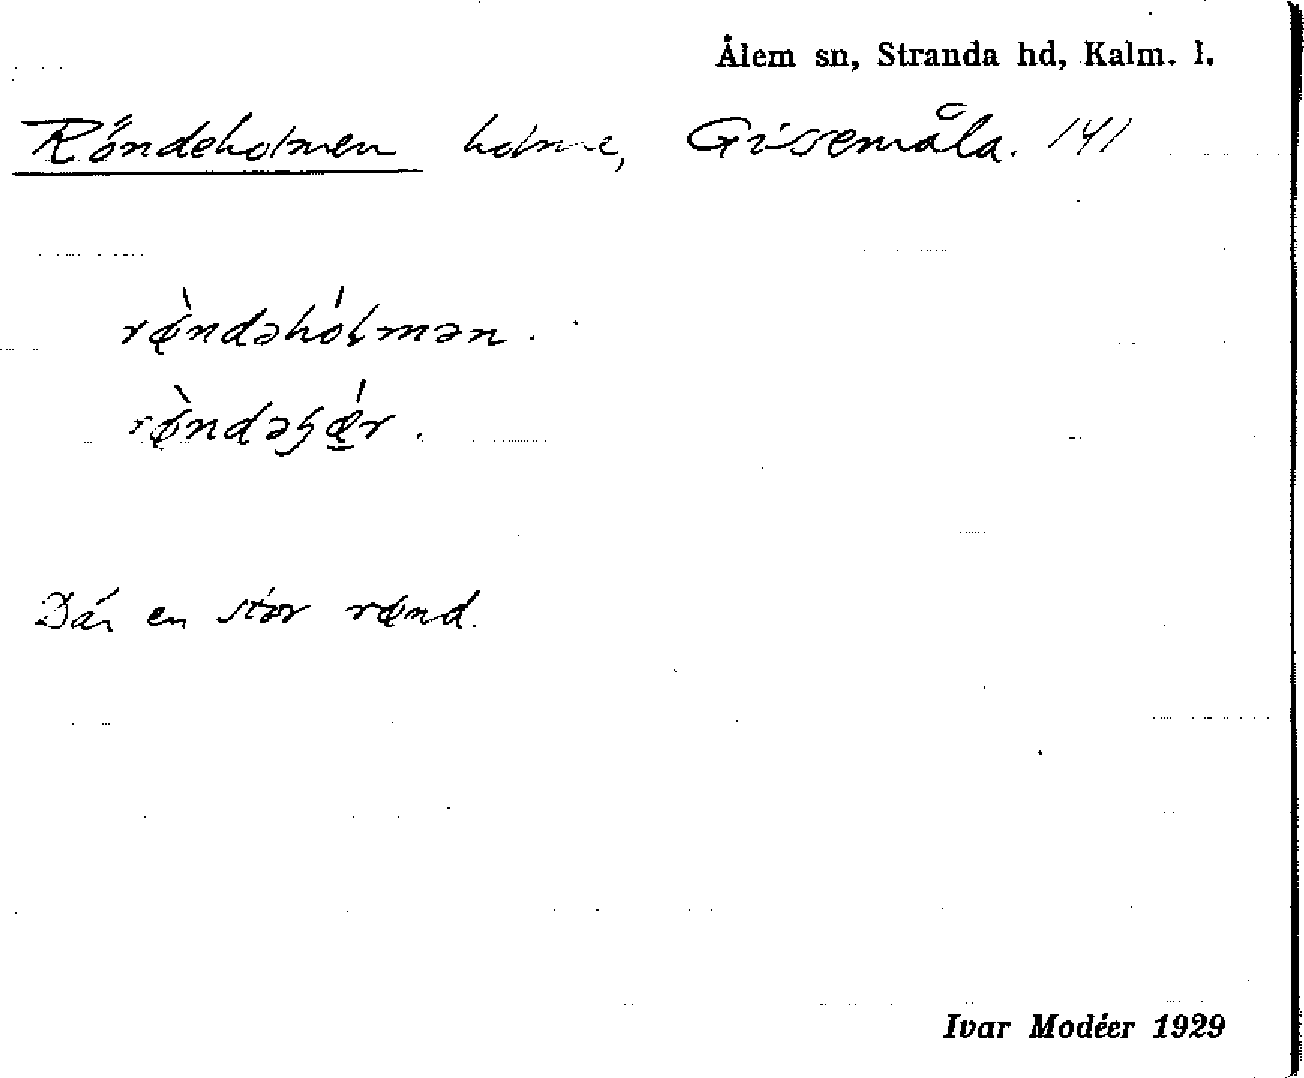 Ålem sn, Stranda hd, Kalm. l.
Röndeholmen holme, Grissemåla. 141
rø̀ndəhólmən.
rø̀ndəʂǽr.
Där en stor rønd.
Ivar Modéer 1929